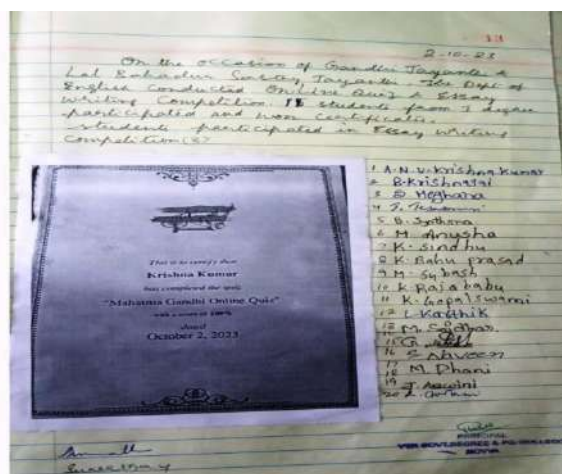 13
2-10-23
On the occasion of Gandhi Jayanthi &
Lal Bahadur Sastry Jayanthi The Dept of
English conducted Online Quiz & Essay
Writing Competition. 18 students from I degree
participated and won Certificates.
students participated in Essay Writing
Competition(s)
This is to certify that
Krishna Kumar
has completed the quiz
"Mahatma Gandhi Online Quiz"
with a score of 100%
dated
October 2, 2023
1 A.N.V. Krishna Kumar
2 B. Krishnasai
3 D. Meghana
4
5 B. Jyothsna
6 M. Anusha
7 K. Sindhu
8 K. Babu prasad
9 M. Subash
10 K. Raja babu
11 K. Gopalswami
12 L. Karthik
13 M. Sridhar
15 G.
16 S. Naveen
17 M. Dhani
18
19 J. Aswini
20
PRINCIPAL